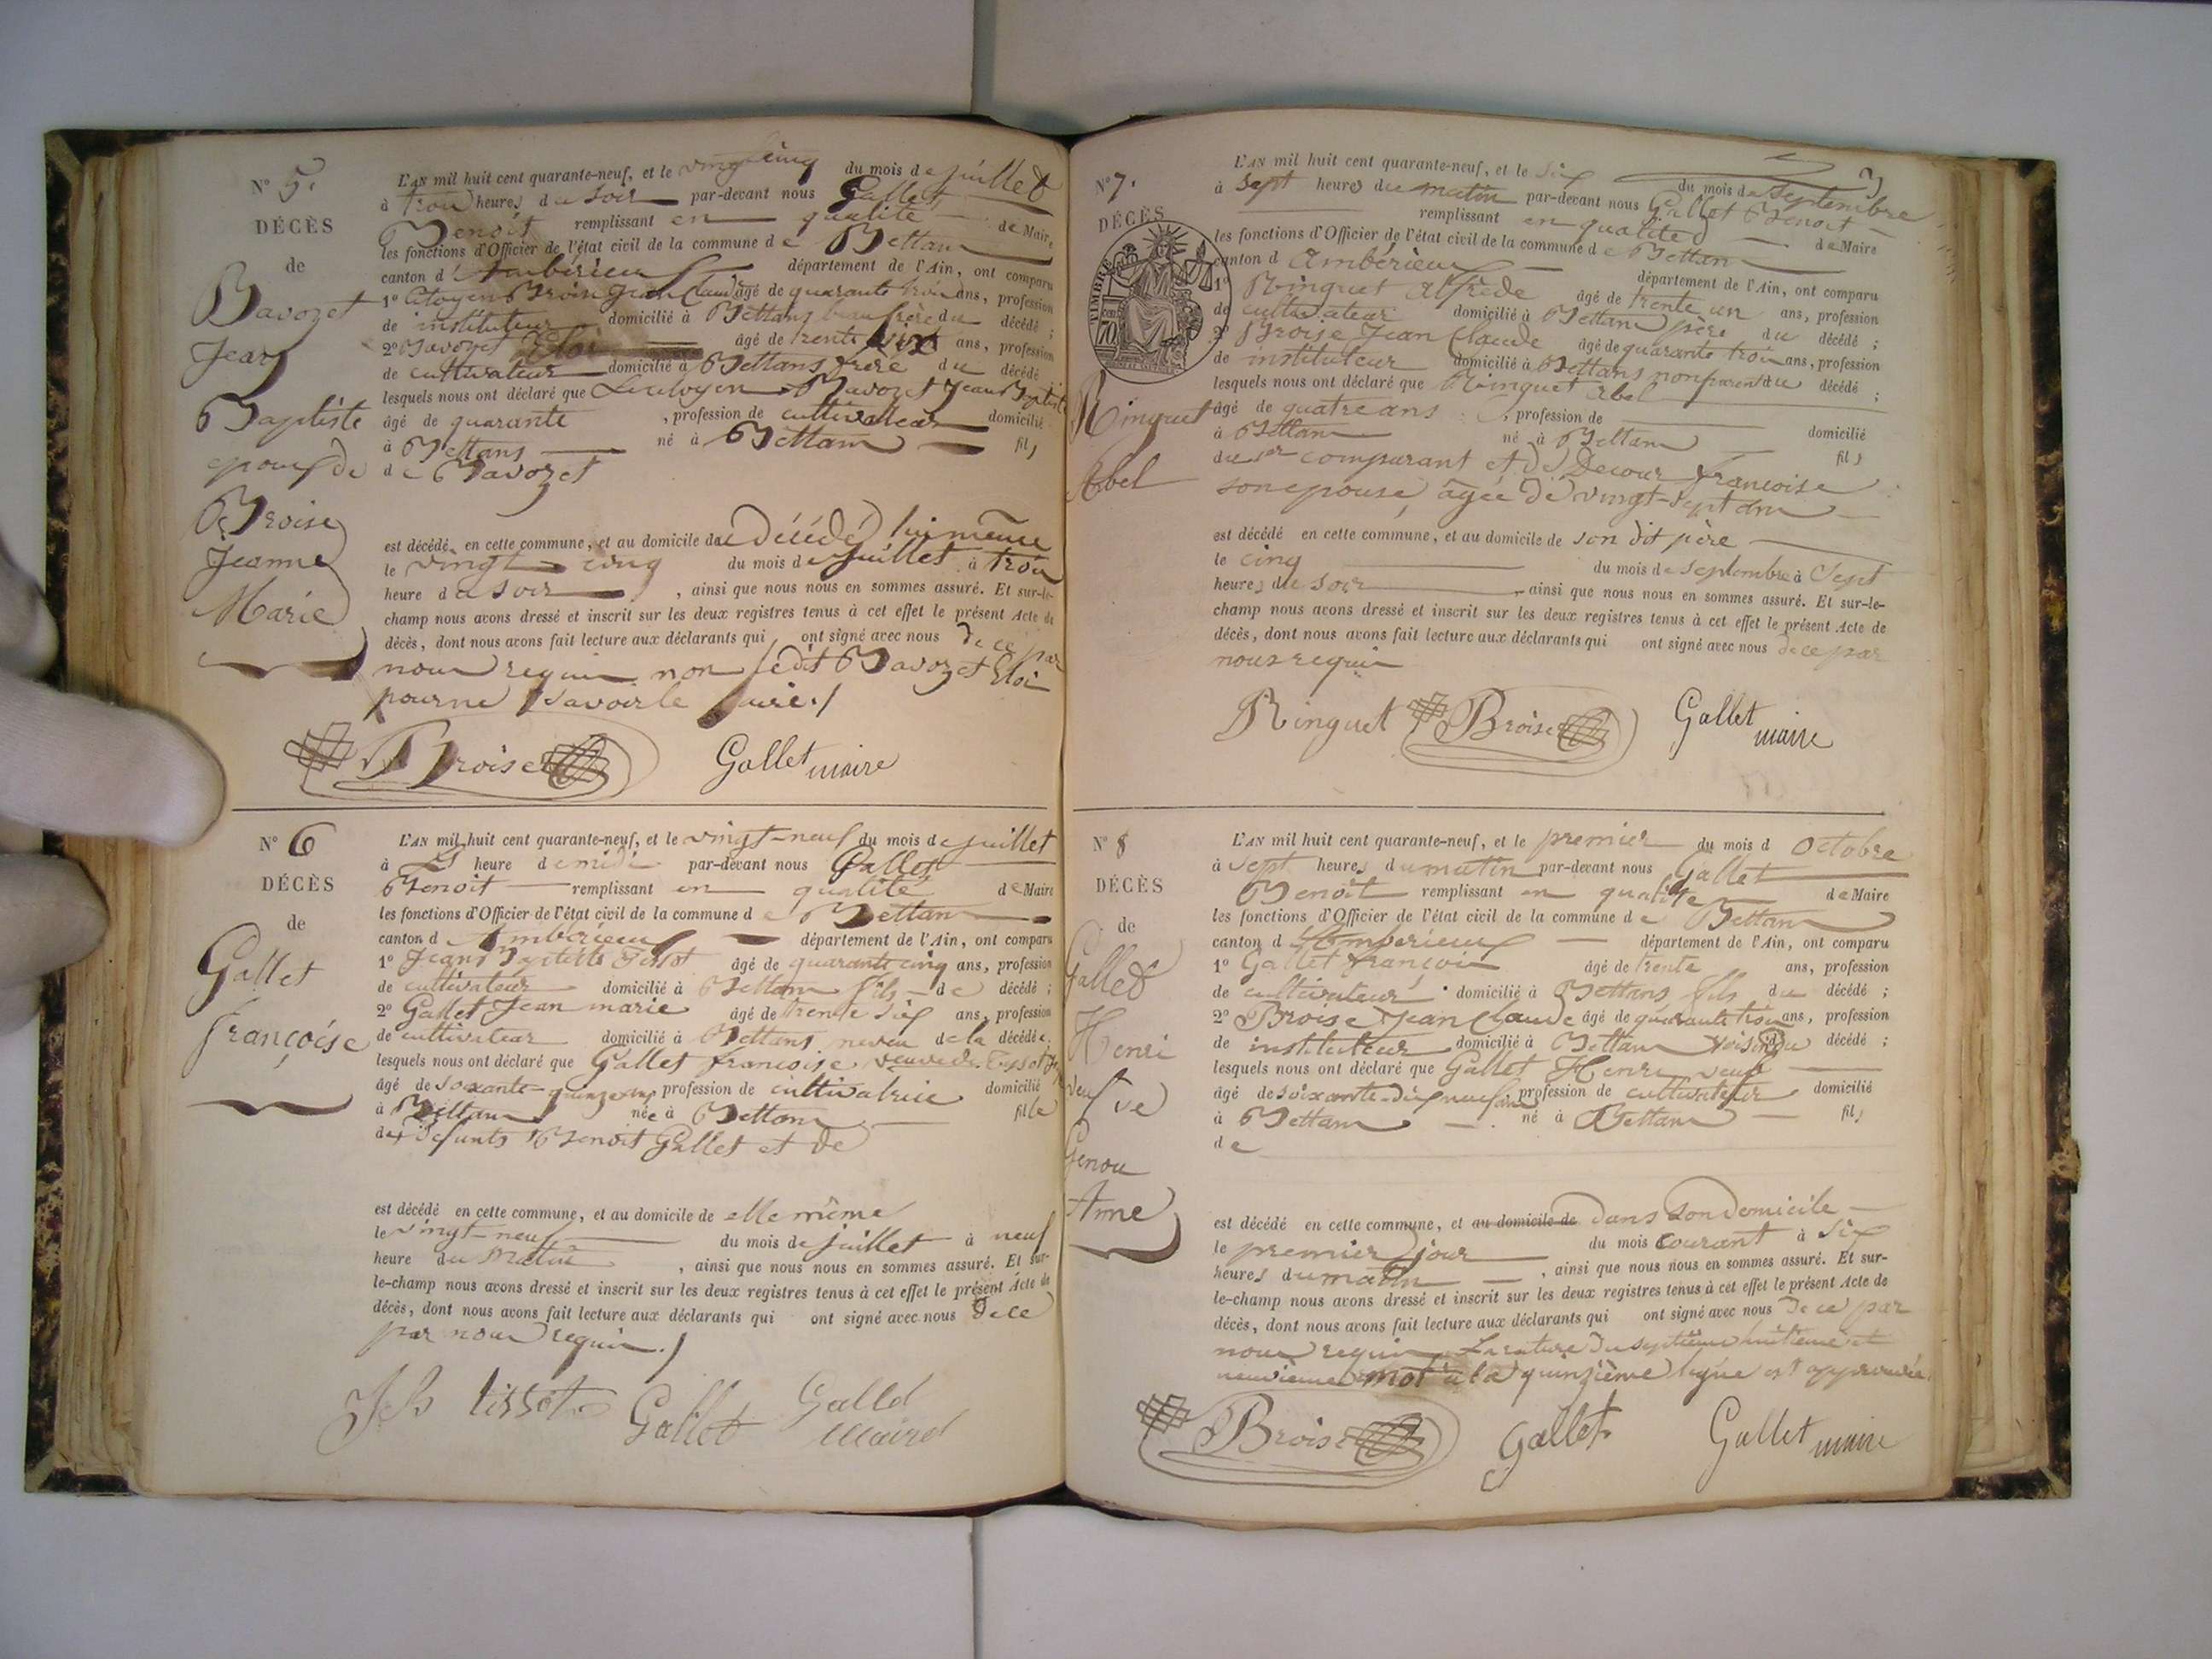 N° 5.
DÉCÈS
de
Bavozet
Jean
Baptiste
epoux de
Broise
Jeanne
Marie
L'AN mil huit cent quarante-neuf, et le vingt cinq du mois de juillet
à trois heures du soir par-devant nous Gallet
Benoit remplissant en qualité de Maire
les fonctions d'Officier de l'état civil de la commune de Bettans
canton d'Ambérieux département de l'Ain, ont comparu
1° Citoyen Broise Jean Claude âgé de quarante trois ans, profession
de instituteur domicilié à Bettans beau frère du décédé ;
2° Bavozet Eloi âgé de trente six ans, profession
de cultivateur domicilié à Bettans frère du décédé
lesquels nous ont déclaré que Le citoyen Bavozet Jean Baptiste
âgé de quarante , profession de cultivateur domicilié
à Bettans né à Bettans fils
de Bavozet
est décédé en cette commune, et au domicile du décédé lui même
le vingt cinq du mois de juillet à trois
heure du soir , ainsi que nous nous en sommes assuré. Et sur-le-
champ nous avons dressé et inscrit sur les deux registres tenus à cet effet le présent Acte de
décès, dont nous avons fait lecture aux déclarants qui ont signé avec nous de ce par
nous requis non ledit Bavozet Eloi
pour ne savoir le faire./
Broise Gallet maire
N° 6
DÉCÈS
de
Gallet
françoise
L'AN mil huit cent quarante-neuf, et le vingt-neuf du mois de juillet
à heure de midi par-devant nous Gallet
Benoit remplissant en qualité de Maire
les fonctions d'Officier de l'état civil de la commune de Bettans
canton d'Ambérieux département de l'Ain, ont comparu
1° Jean Baptiste Tissot âgé de quarante cinq ans, profession
de cultivateur domicilié à Bettans fils de décédé ;
2° Gallet Jean marie âgé de trente six ans, profession
de cultivateur domicilié à Bettans neveu de la décédée
lesquels nous ont déclaré que Gallet francoise veuve de Tissot
âgé de soixante-quinze ans profession de cultivatrice domicilié
à Bettans née à Bettans fille
des defunts Benoit Gallet et de
est décédé en cette commune, et au domicile de elle même
le vingt-neuf du mois de juillet à neuf
heure du matin , ainsi que nous nous en sommes assuré. Et sur-
le-champ nous avons dressé et inscrit sur les deux registres tenus à cet effet le présent Acte de
décès, dont nous avons fait lecture aux déclarants qui ont signé avec nous de ce
par nous requis./
JB tissot Gallet Gallet maire
3
N° 7.
DÉCÈS
TIMBRE
70
Ringuet
Abel
L'AN mil huit cent quarante-neuf, et le six du mois de septembre
à sept heures du matin par-devant nous Gallet Benoit
remplissant en qualité de Maire
les fonctions d'Officier de l'état civil de la commune de Bettans
canton d'Ambérieux département de l'Ain, ont comparu
1° Ringuet alfrede âgé de trente un ans, profession
de cultivateur domicilié à Bettans père du décédé ;
2° Broise Jean Claude âgé de quarante trois ans, profession
de instituteur domicilié à Bettans non parent du décédé ;
lesquels nous ont déclaré que Ringuet Abel
âgé de quatre ans , profession de domicilié
à Bettans né à Bettans fils
du 1er comparant et de Decour francoise
son epouse, âgée de vingt-sept ans
est décédé en cette commune, et au domicile de son dit père
le cinq du mois de septembre à sept
heures du soir , ainsi que nous nous en sommes assuré. Et sur-le-
champ nous avons dressé et inscrit sur les deux registres tenus à cet effet le présent Acte de
décès, dont nous avons fait lecture aux déclarants qui ont signé avec nous de ce par
nous requis
Ringuet Broise Gallet maire
N° 8
DÉCÈS
de
Gallet
Henri
veuf de
Genou
Anne
L'AN mil huit cent quarante-neuf, et le premier du mois d Octobre
à sept heures du matin par-devant nous Gallet
Benoit remplissant en qualité de Maire
les fonctions d'Officier de l'état civil de la commune de Bettans
canton d'Ambérieux département de l'Ain, ont comparu
1° Gallet françois âgé de trente ans, profession
de cultivateur domicilié à Bettans fils du décédé ;
2° Broise Jean Claude âgé de quarante trois ans, profession
de instituteur domicilié à Bettans voisin du décédé ;
lesquels nous ont déclaré que Gallet Henri veuf
âgé de soixante-dix neuf ans, profession de cultivateur domicilié
à Bettans né à Bettans fils
de
est décédé en cette commune, et au domicile de dans son domicile
le premier jour du mois courant à six
heures du matin , ainsi que nous nous en sommes assuré. Et sur-
le-champ nous avons dressé et inscrit sur les deux registres tenus à cet effet le présent Acte de
décès, dont nous avons fait lecture aux déclarants qui ont signé avec nous de ce par
nous requis La rature du septième huitième et
neuvième mot à la quinzième ligne est approuvée
Broise Gallet Gallet maire